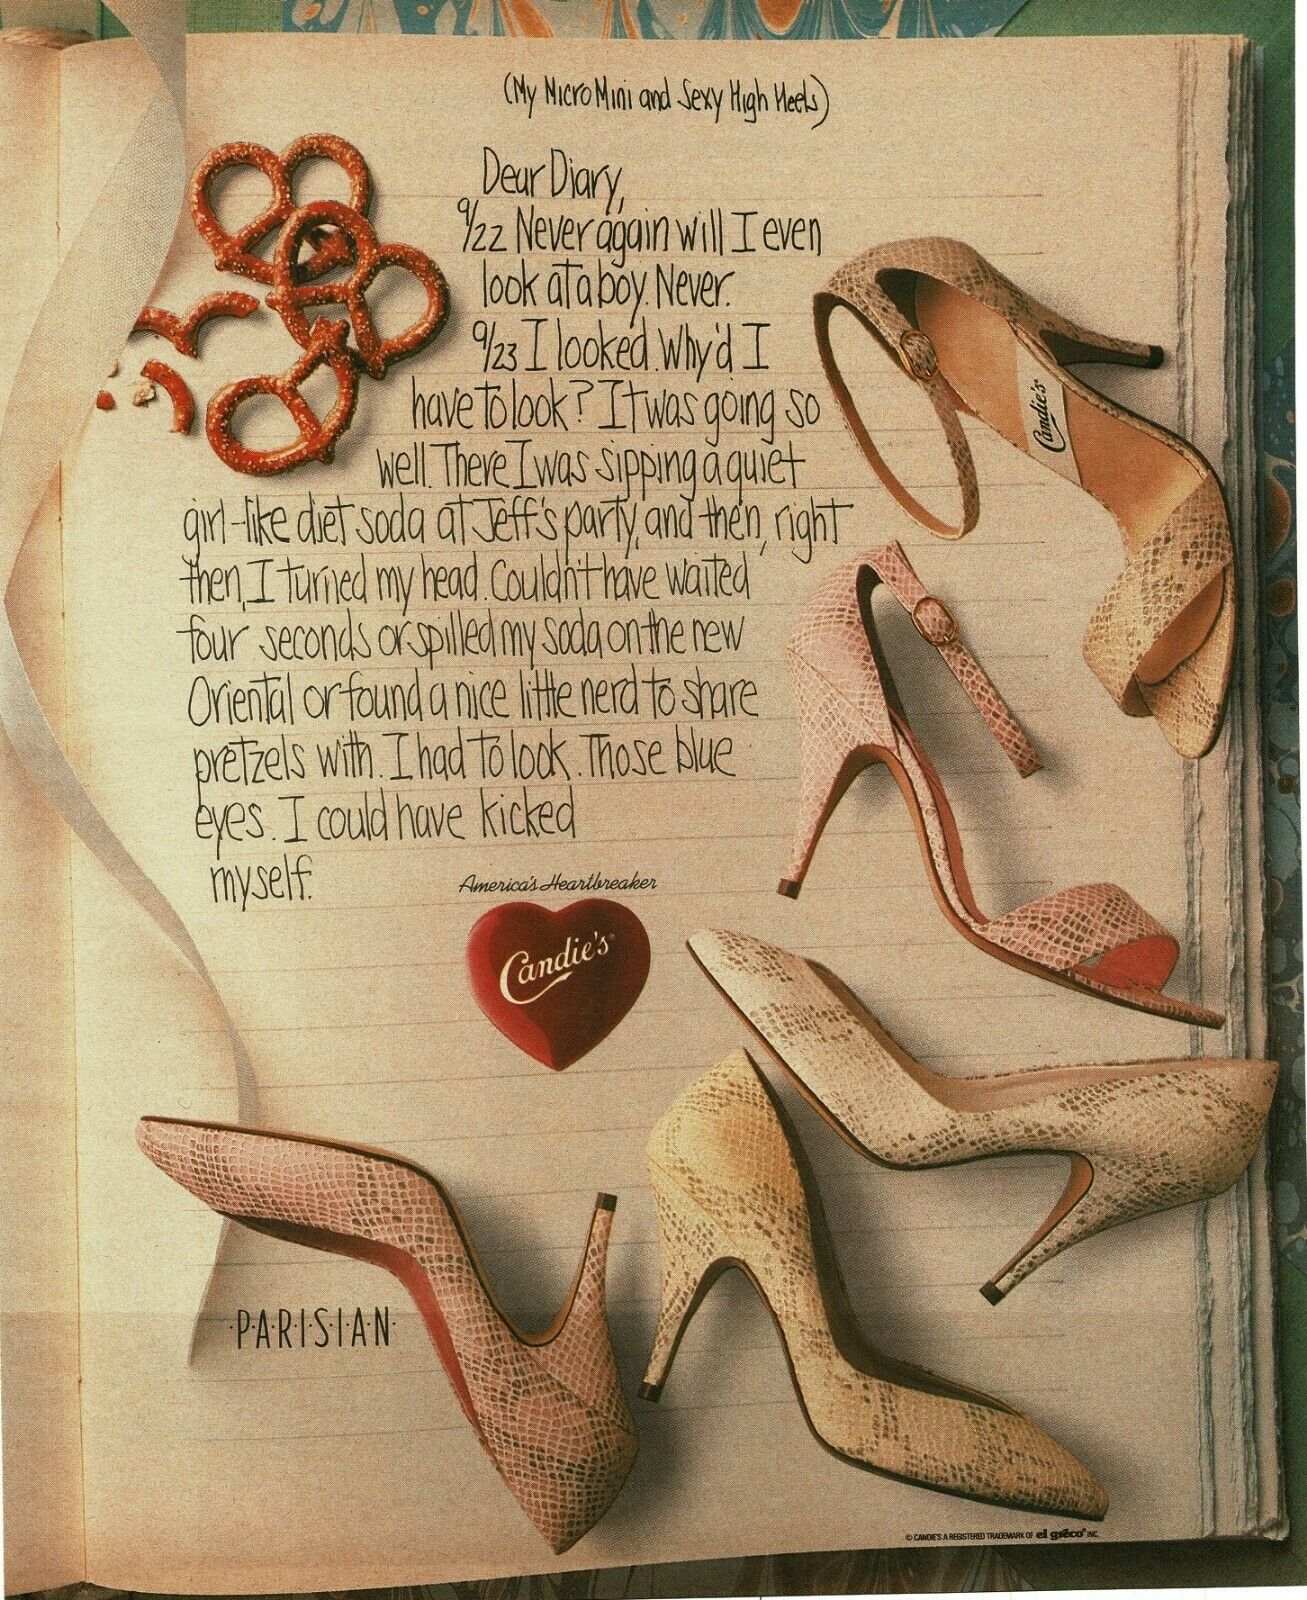 (My Micro Mini and Sexy High Heels)
Dear Diary,
9/22 Never again will I even
look at a boy. Never.
9/23 I looked. Why'd I
have to look? It was going so
well. There I was sipping a quiet
girl-like diet soda at Jeff's party, and then, right
then, I turned my head. Couldn't have waited
four seconds or spilled my soda on the new
Oriental or found a nice little nerd to share
pretzels with. I had to look. Those blue
eyes. I could have kicked
myself.
America's Heartbreaker
Candie's®
Candie's
·P·A·R·I·S·I·A·N·
© CANDIE'S A REGISTERED TRADEMARK OF el gréco® INC.